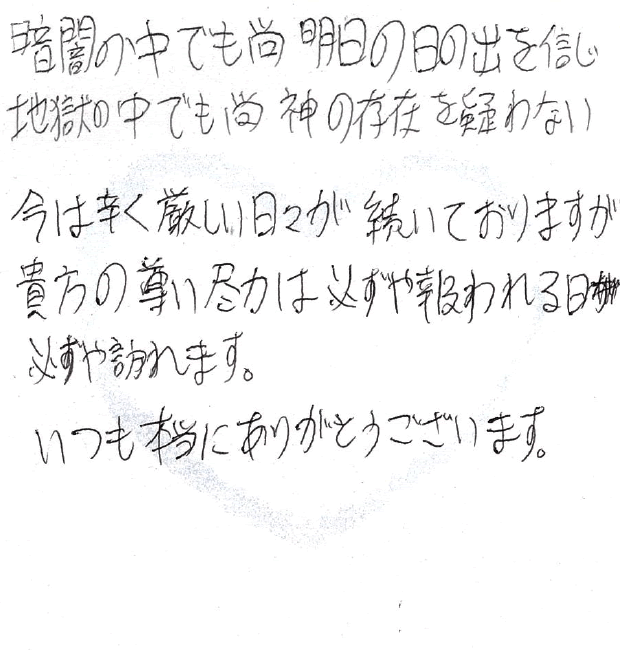 暗闇の中でも尚 明日の日の出を信じ
地獄の中でも尚 神の存在を疑わない
今は辛く厳しい日々が 続いておりますが
貴方の尊い尽力は必ずや報われる日
必ずや訪れます。
いつも本当にありがとうございます。